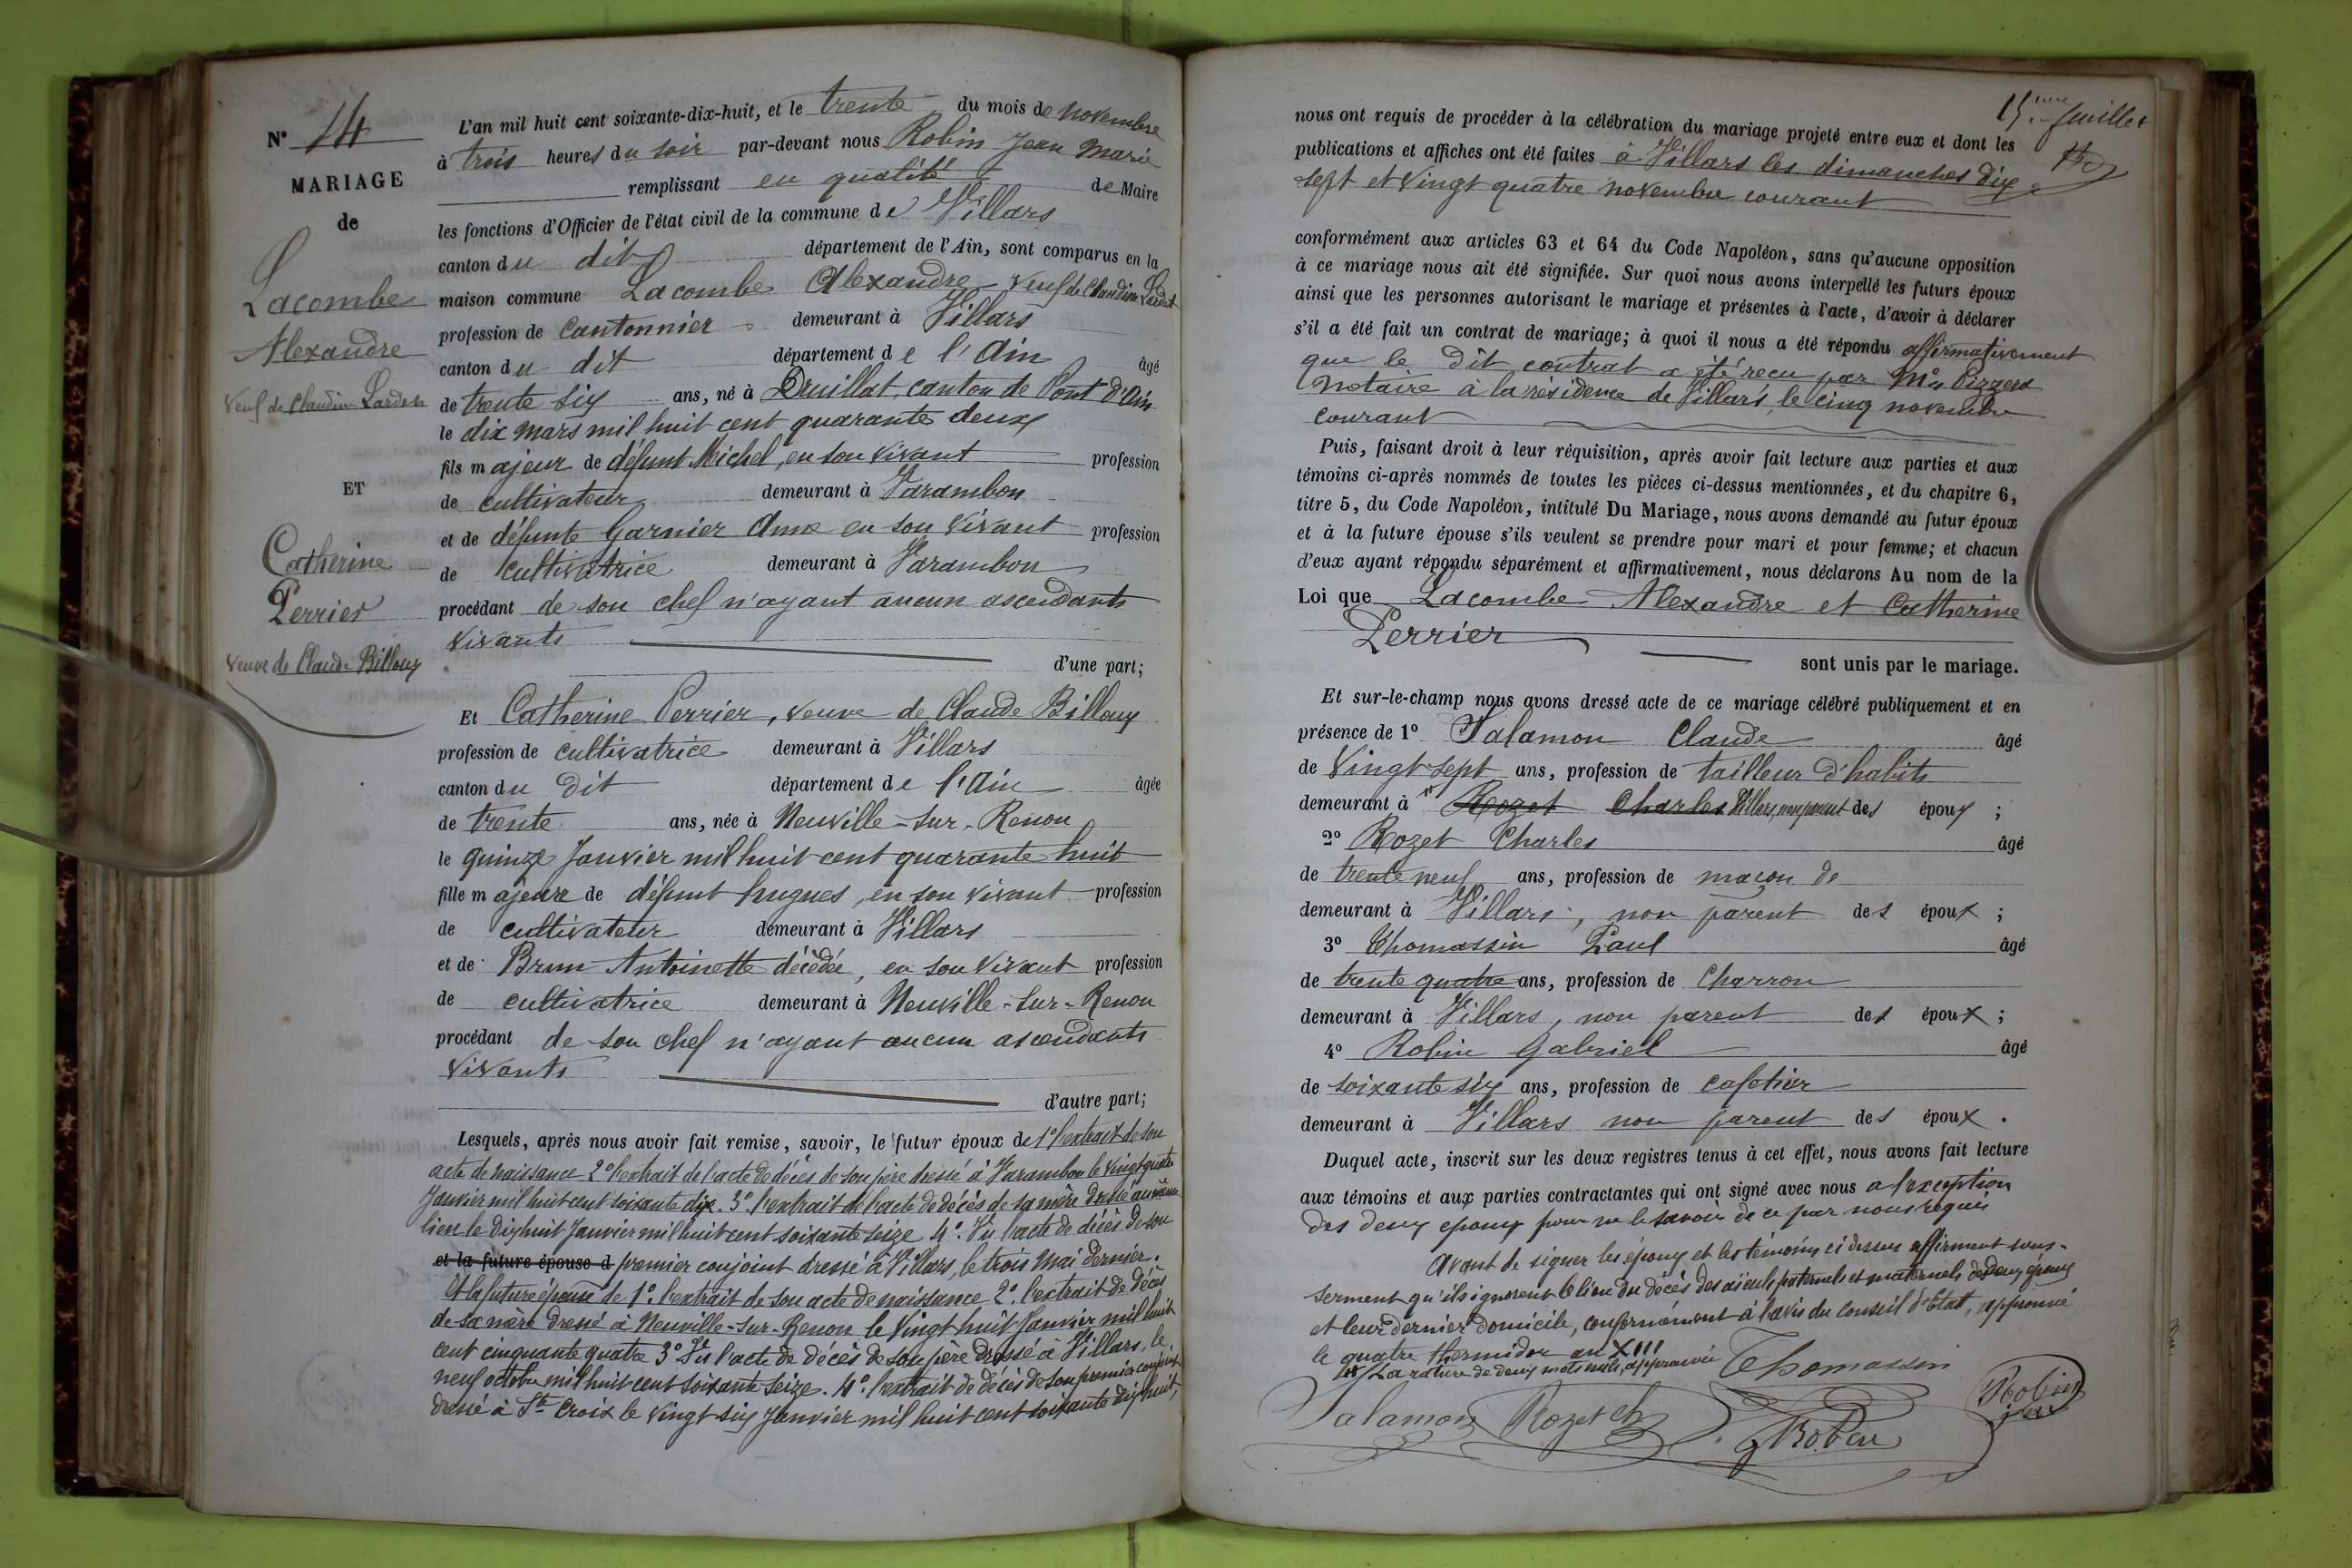 N° 14
MARIAGE
de
Lacombe
Alexandre
Veuf de Claudine Lardet
ET
Catherine
Perrier
Veuve de Claude Billoux
L'an mil huit cent soixante-dix-huit, et le trente du mois de novembre
à trois heures du soir par-devant nous Robin Jean Marie
remplissant en qualité de Maire
les fonctions d'Officier de l'état civil de la commune de Villars
canton du dit département de l'Ain, sont comparus en la
maison commune Lacombe Alexandre Veuf de Claudine Lardet
profession de cantonnier demeurant à Villars
canton du dit département de l'Ain âgé
de trente six ans, né à Druillat, canton de Pont d'Ain
le dix mars mil huit cent quarante deux
fils majeur de défunt Michel, en son vivant profession
de cultivateur demeurant à Varambon
et de défunte Garnier Anne en son vivant profession
de cultivatrice demeurant à Varambon
procédant de son chef n'ayant aucun ascendants
vivants
d'une part;
Et Catherine Perrier, veuve de Claude Billoux
profession de cultivatrice demeurant à Villars
canton du dit département de l'Ain âgée
de trente ans, née à Neuville-sur-Renon
le quinze Janvier mil huit cent quarante huit
fille majeure de défunt hugues, en son vivant profession
de cultivateur demeurant à Villars
et de Brun Antoinette décédée, en son vivant profession
de cultivatrice demeurant à Neuville-sur-Renon
procédant de son chef n'ayant aucun ascendants
vivants
d'autre part;
Lesquels, après nous avoir fait remise, savoir, le futur époux de 1° l'extrait de son
acte de naissance 2° l'extrait de l'acte de décès de son père dressé à Varambon le vingt quatre
Janvier mil huit cent soixante dix. 3° l'extrait de l'acte de décès de sa mère dressé au même
lieu le dix huit Janvier mil huit cent soixante seize 4° Vu l'acte de décès de son
et la future épouse d premier conjoint dressé à Villars, le trois mai dernier.
Et la future épouse de 1° l'extrait de son acte de naissance 2° l'extrait de décès
de sa mère dressé à Neuville-sur-Renon le vingt huit Janvier mil huit
cent cinquante quatre 3° Vu l'acte de décès de son père dressé à Villars, le
neuf octobre mil huit cent soixante seize. 4° l'extrait de décès de son premier conjoint
dressé à Ste Croix le vingt six Janvier mil huit cent soixante dix huit,
15.me feuillet
nous ont requis de procéder à la célébration du mariage projeté entre eux et dont les
publications et affiches ont été faites à Villars les dimanches dix
sept et vingt quatre novembre courant
conformément aux articles 63 et 64 du Code Napoléon, sans qu'aucune opposition
à ce mariage nous ait été signifiée. Sur quoi nous avons interpellé les futurs époux
ainsi que les personnes autorisant le mariage et présentes à l'acte, d'avoir à déclarer
s'il a été fait un contrat de mariage; à quoi il nous a été répondu affirmativement
que le dit contrat a été reçu par Me
notaire à la résidence de Villars, le cinq novembre
courant
Puis, faisant droit à leur réquisition, après avoir fait lecture aux parties et aux
témoins ci-après nommés de toutes les pièces ci-dessus mentionnées, et du chapitre 6,
titre 5, du Code Napoléon, intitulé Du Mariage, nous avons demandé au futur époux
et à la future épouse s'ils veulent se prendre pour mari et pour femme; et chacun
d'eux ayant répondu séparément et affirmativement, nous déclarons Au nom de la
Loi que Lacombe Alexandre et Catherine
Perrier
sont unis par le mariage.
Et sur-le-champ nous avons dressé acte de ce mariage célébré publiquement et en
présence de 1° Salamon Claude âgé
de vingt sept ans, profession de tailleur d'habits
demeurant à Rozet Charles Villars, non parent des époux ;
2° Rozet Charles âgé
de trente neuf ans, profession de maçon de
demeurant à Villars, non parent des époux ;
3° Thomassin Paul âgé
de trente quatre ans, profession de Charron
demeurant à Villars, non parent des époux ;
4° Robin Gabriel âgé
de soixante six ans, profession de cafetier
demeurant à Villars non parent des époux.
Duquel acte, inscrit sur les deux registres tenus à cet effet, nous avons fait lecture
aux témoins et aux parties contractantes qui ont signé avec nous a l'exception
des deux epoux pour ne le savoir de ce par nous requis
Avant de signer les époux et les témoins ci dessus affirment sous-
serment qu'ils ignorent le lieu du décès des aïeuls paternels et maternels des deux époux
et leur dernier domicile, conformément à l'avis du conseil d'Etat, approuvé
le quatre thermidor an XIII
La rature de deux mots nuls, approuvée
Thomassin
Salamon Rozet ch
G Robin
Robin